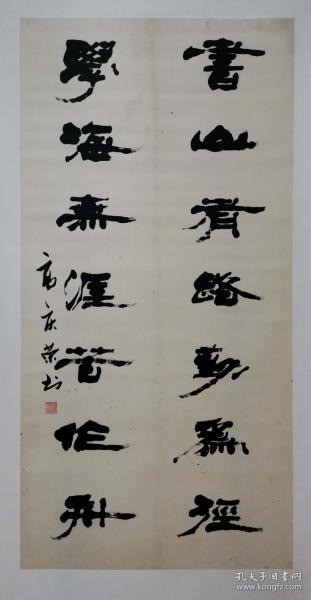 書山有路勤為徑
學海無涯苦作舟
高庆荣书
孔夫子旧书网
www.kongfz.com